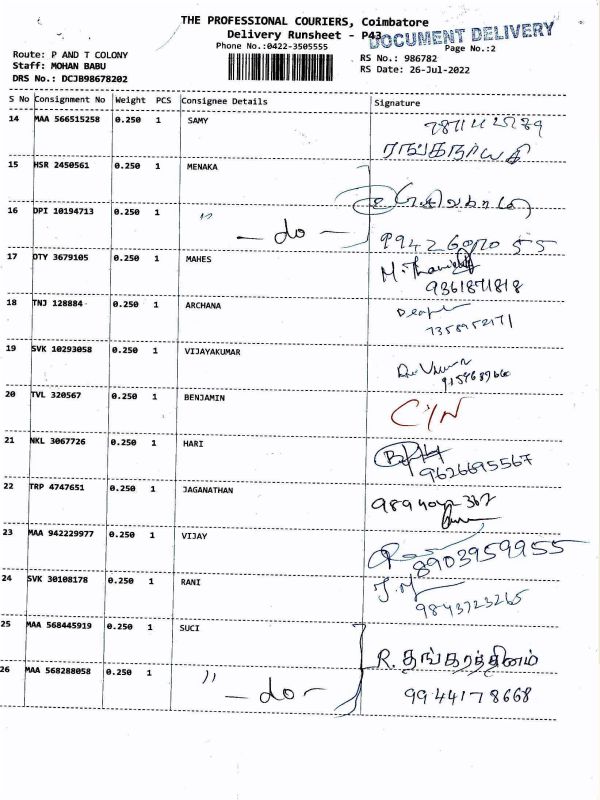 THE PROFESSIONAL COURIERS, Coimbatore
Delivery Runsheet - P43
DOCUMENT DELIVERY
Phone No.:0422-3505555
Page No.:2
Route: P AND T COLONY
Staff: MOHAN BABU
DRS No.: DCJB98678202
RS No.: 986782
RS Date: 26-Jul-2022
S No Consignment No Weight PCS Consignee Details Signature
14 MAA 566515258 0.250 1 SAMY
ரங்கநாயகி
15 HSR 2450561 0.250 1 MENAKA
16 DPI 10194713 0.250 1 〃
— do —
17 DTY 3679105 0.250 1 MAHES
9361871818
18 TNJ 128884 0.250 1 ARCHANA
19 SVK 10293058 0.250 1 VIJAYAKUMAR
20 TVL 320567 0.250 1 BENJAMIN
21 NKL 3067726 0.250 1 HARI
9626695567
22 TRP 4747651 0.250 1 JAGANATHAN
23 MAA 942229977 0.250 1 VIJAY
8903959955
24 SVK 30108178 0.250 1 RANI
9843723265
25 MAA 568445919 0.250 1 SUCI
R. தங்கரத்தினம்
26 MAA 568288058 0.250 1 〃
— do —
9944178668